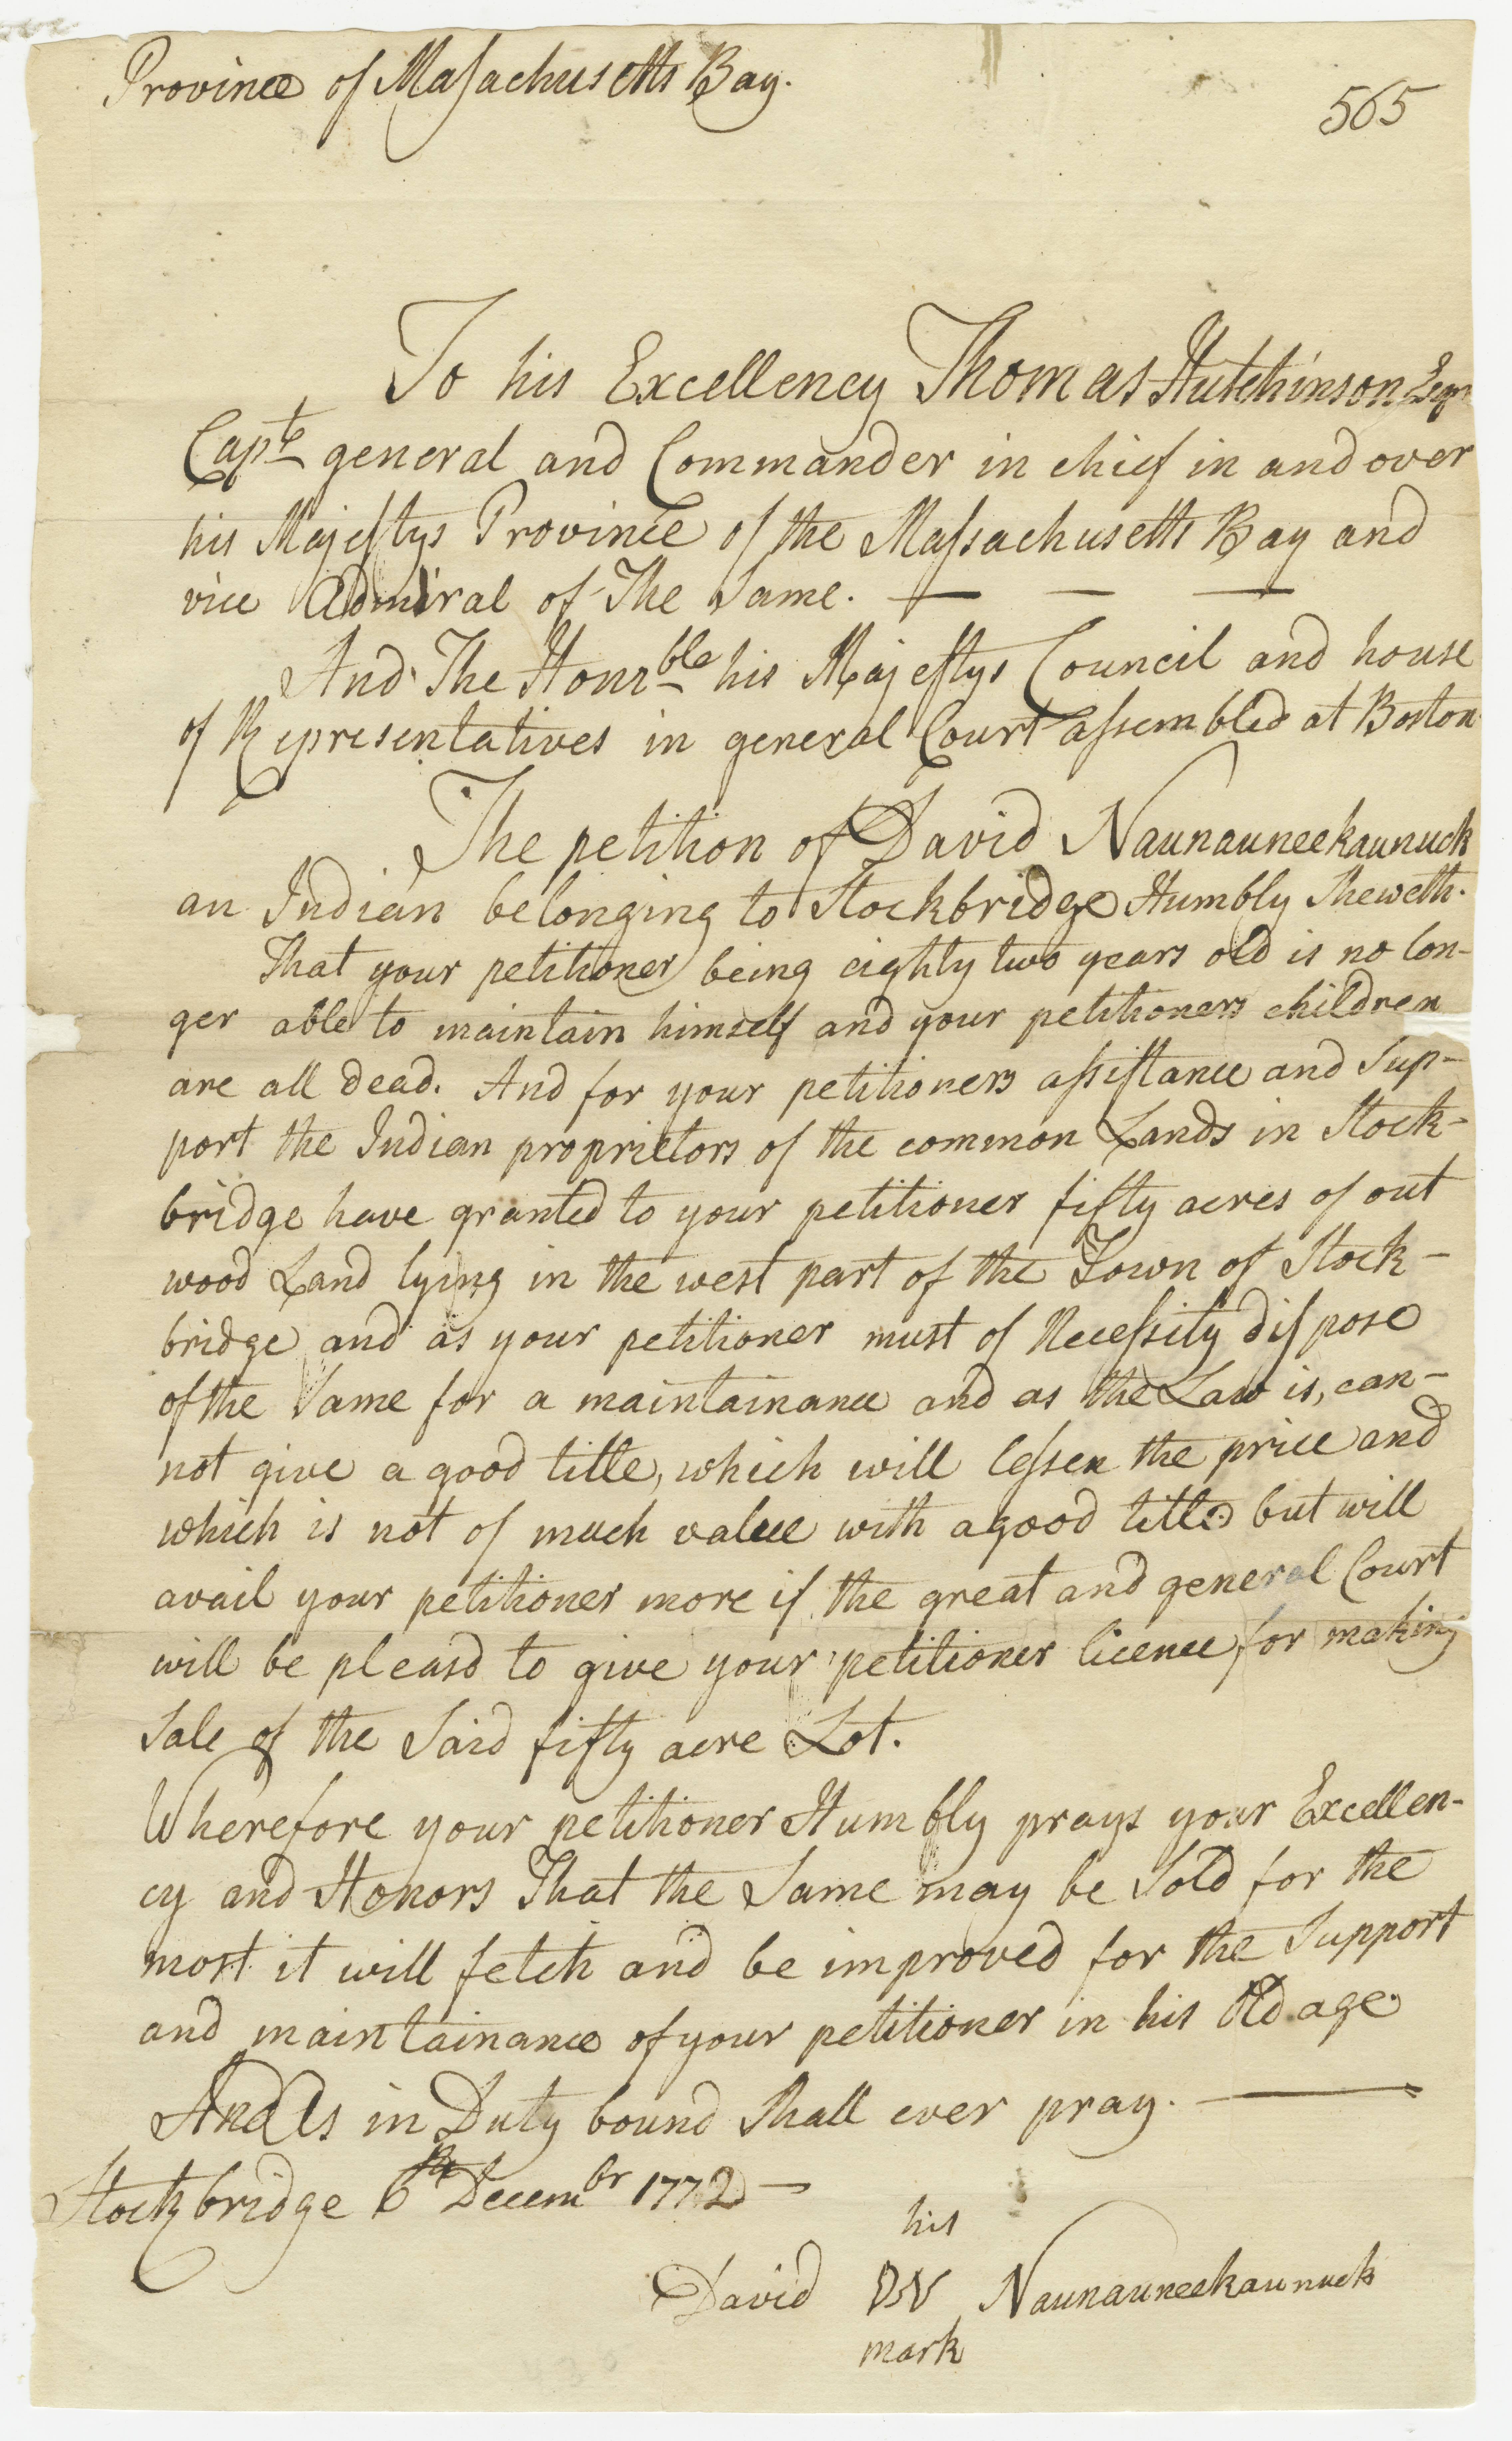 Province of Massachusetts Bay.
565
To his Excellency Thomas Hutchinson Esqr
Capt. general and Commander in chief in and over
his Majestys Province of the Massachusetts Bay and
vice Admiral of The Same. — — —
And The Honrble his Majestys Council and house
of Representatives in general Court assembled at Boston
The petition of David Naunauneekaunuck
an Indian belonging to Stockbridge Humbly Sheweth.
That your petitioner being eighty two years old is no lon-
ger able to maintain himself and your petitioners children
are all dead. And for your petitioners assistance and Sup-
port the Indian proprietors of the common Lands in Stock-
bridge have granted to your petitioner fifty acres of out
wood Land lying in the west part of the Town of Stock-
bridge and as your petitioner must of Necessity dispose
of the Same for a maintainance and as the Law is, can-
not give a good title, which will lessen the price and
which is not of much value with a good title but will
avail your petitioner more if the great and general Court
will be pleasd to give your petitioner licence for making
Sale of the Said fifty acre Lot.
Wherefore your petitioner Humbly prays your Excellen-
cy and Honors That the Same may be Sold for the
most it will fetch and be improved for the Support
and maintainance of your petitioner in his Old age
And As in Duty bound Shall ever pray. —
Stockbridge 6th Decembr 1772 —
his
David DN Naunauneekaunuck
mark